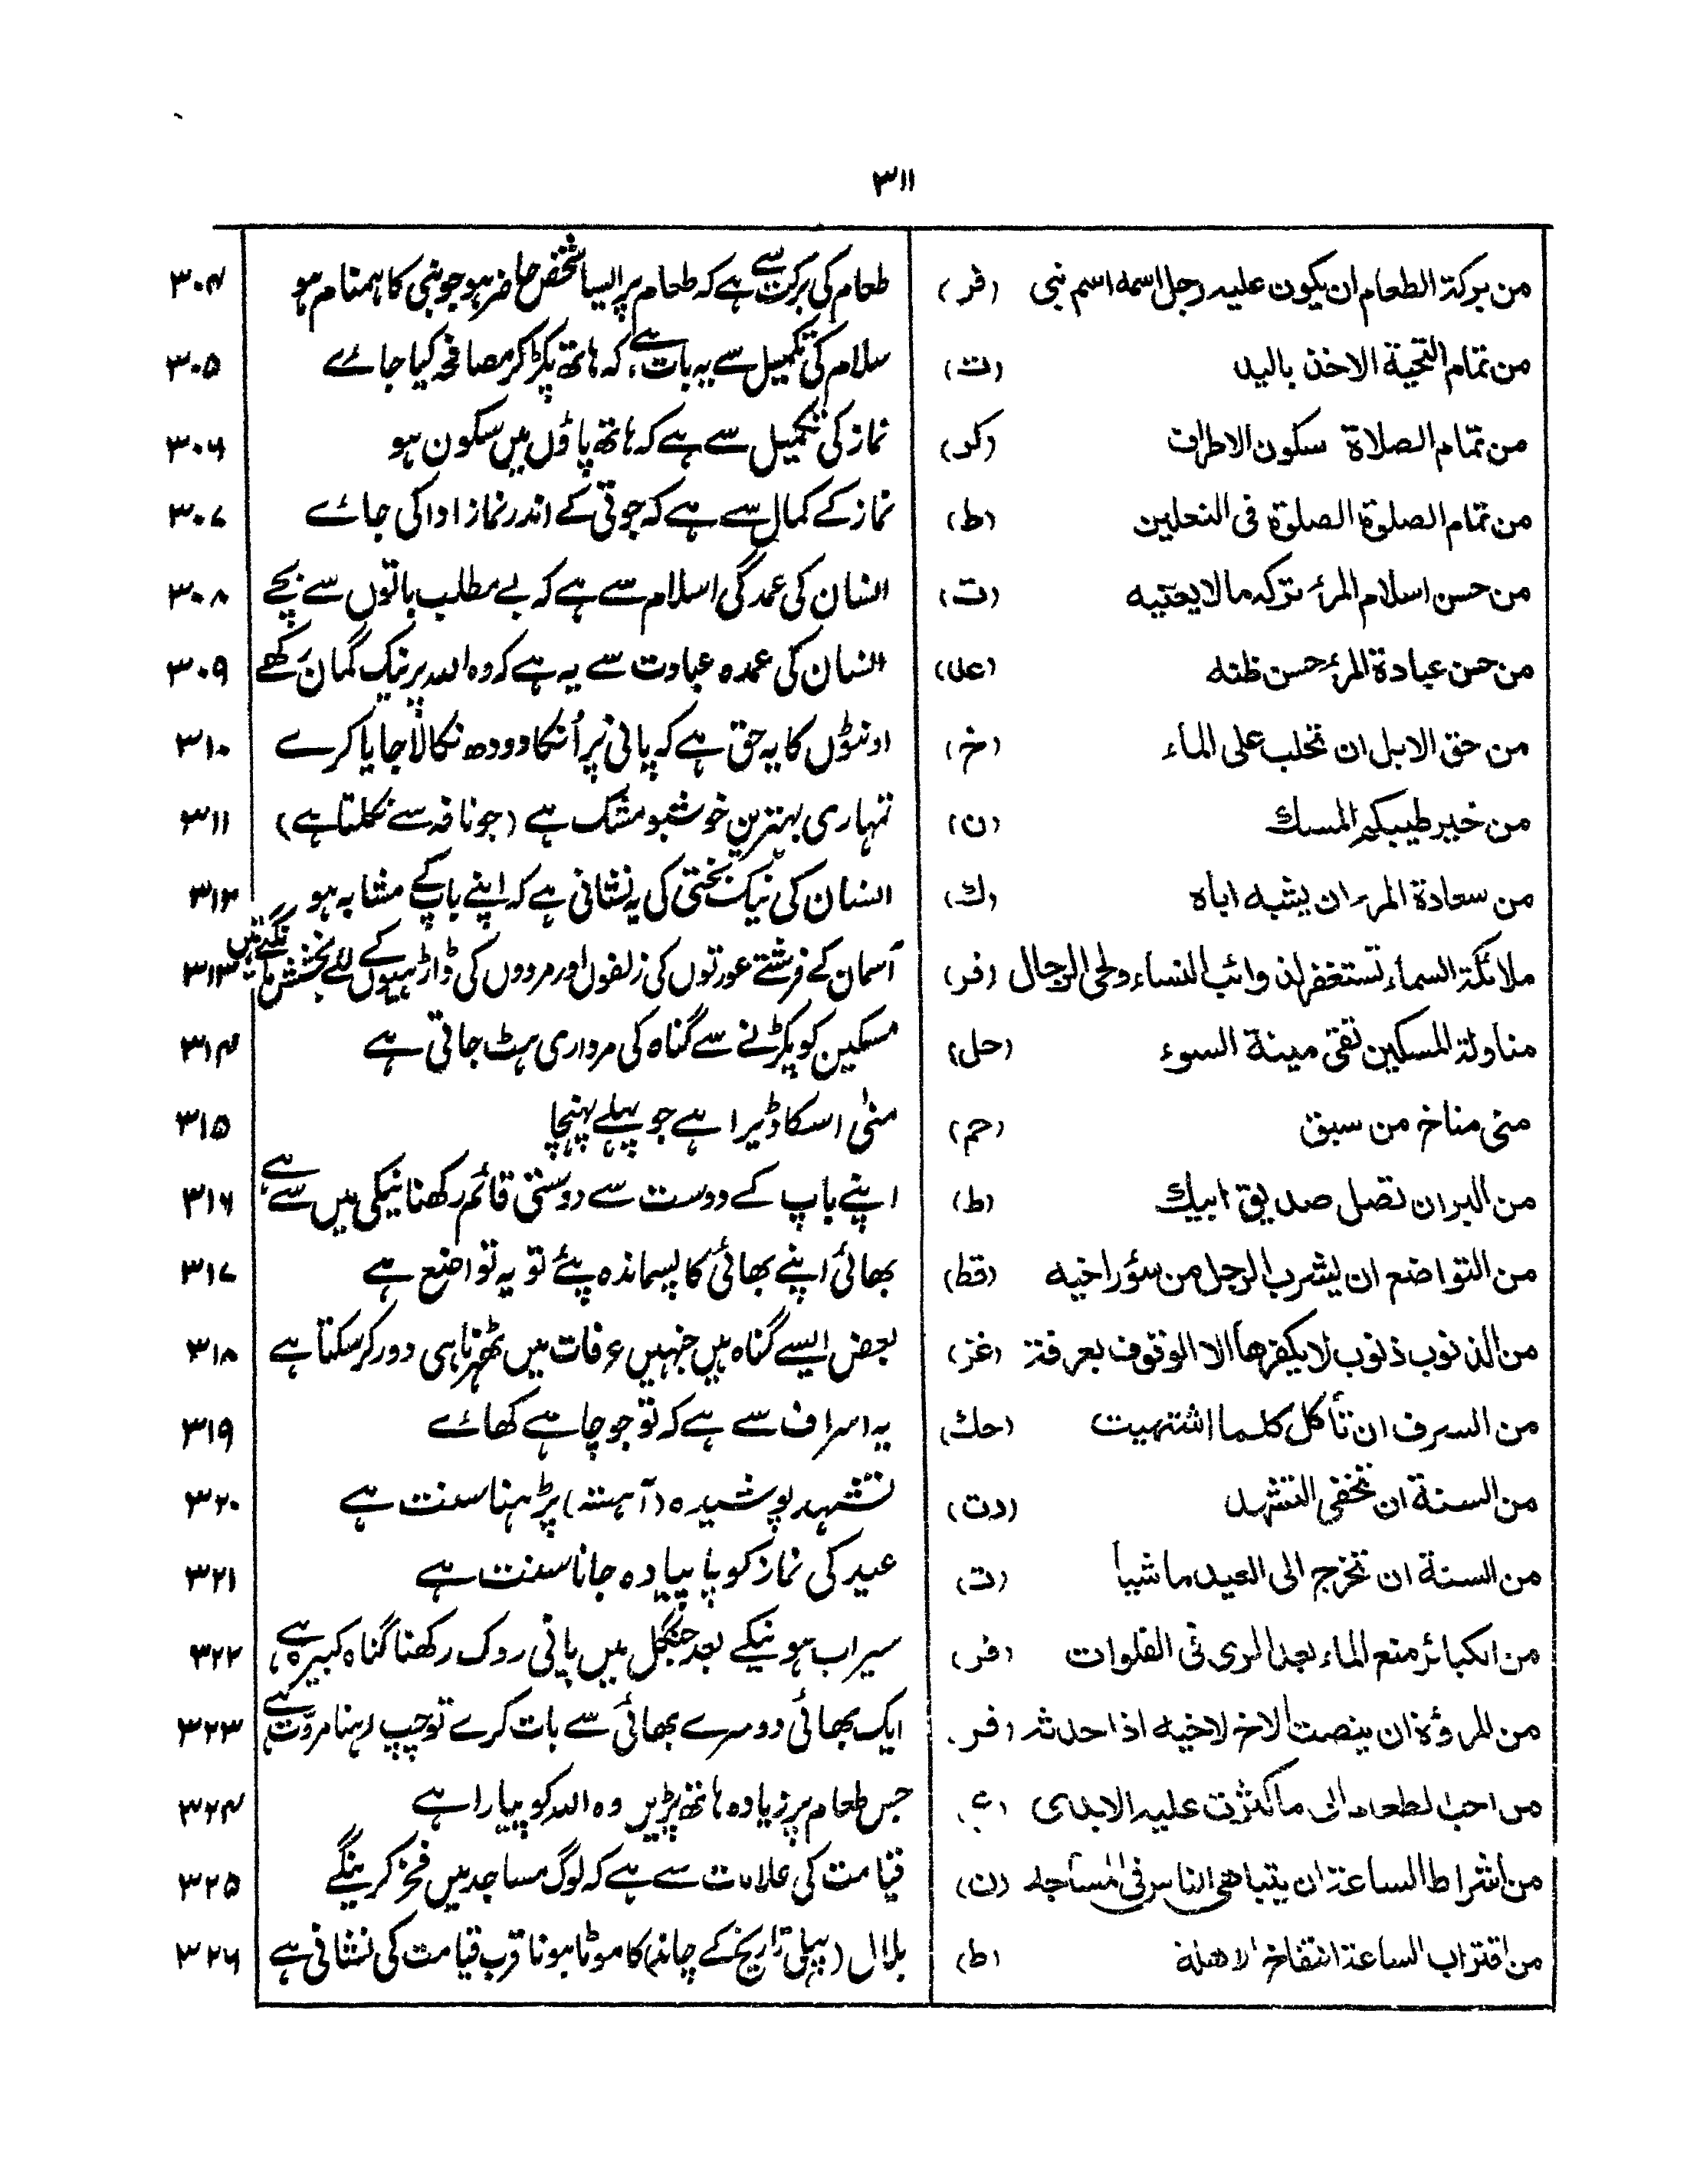 ۳۱۱
من برکة الطعام ان یکون علیہ رجل اسمہ اسم نبی (فر) طعام کی برکت سے ہے کہ طعام پر ایسا شخص حاضر ہو جو نبی کا ہمنام ہو ۳۰۴
من تمام التحیة الاخذ بالید (ت) سلام کی تکمیل سے یہ بات ہے، کہ ہاتھ پکڑ کر مصافحہ کیا جائے ۳۰۵
من تمام الصلاة سکون الاطراف (کر) نماز کی تکمیل سے ہے کہ ہاتھ پاؤں میں سکون ہو ۳۰۶
من تمام الصلوة الصلوة فی النعلین (ط) نماز کے کمال سے ہے کہ جوتی کے اندر نماز ادا کی جائے ۳۰۷
من حسن اسلام المرئ ترکہ مالا یعنیہ (ت) انسان کی عمدگی اسلام سے ہے کہ بے مطلب باتوں سے بچے ۳۰۸
من حسن عبادة المرئ حسن ظنہ (عد) انسان کی عمدہ عبادت سے یہ ہے کہ وہ اللہ پر نیک گمان رکھے ۳۰۹
من حق الابل ان تحلب علی الماء (خ) اونٹوں کا یہ حق ہے کہ پانی پر اُنکا دودھ نکالا جایا کرے ۳۱۰
من خیر طیبکم المسک (ن) تمہاری بہترین خوشبو مشک ہے (جو نافہ سے نکلتا ہے) ۳۱۱
من سعادة المرء ان یشبہ اباہ (ک) انسان کی نیک بختی کی یہ نشانی ہے کہ اپنے باپ کے مشابہ ہو ۳۱۲
ملائکة السماء تستغفر لذوائب النساء ولحی الرجال (فر) آسمان کے فرشتے عورتوں کی زلفوں اور مردوں کی ڈاڑہیوں کے لئے بخشش مانگتے ہیں ۳۱۳
مناولة المسکین تقی میتة السوء (حل) مسکین کو پکڑنے سے گناہ کی مرداری ہٹ جاتی ہے ۳۱۴
منی مناخ من سبق (حم) منیٰ اسکا ڈیرا ہے جو پہلے پہنچا ۳۱۵
من البر ان تصل صدیق ابیک (ط) اپنے باپ کے دوست سے دوستی قائم رکھنا نیکی میں سے ہے ۳۱۶
من التواضع ان یشرب الرجل من سؤر اخیہ (قط) بھائی اپنے بھائی کا پسماندہ پئے تو یہ تواضع ہے ۳۱۷
من الذنوب ذنوب لا یکفرها الا الوقوف بعرفة (غز) بعض ایسے گناہ ہیں جنہیں عرفات میں ٹھہرنا ہی دور کر سکتا ہے ۳۱۸
من السرف ان تأکل کلما اشتهیت (حک) یہ اسراف سے ہے کہ تو جو چاہے کھائے ۳۱۹
من السنة ان تخفی التشهد (دت) تشہد پوشیدہ (آہستہ) پڑہنا سنت ہے ۳۲۰
من السنة ان تخرج الی العید ماشیاً (ت) عید کی نماز کو پا پیادہ جانا سنت ہے ۳۲۱
من الکبائر منع الماء بعد الری فی الفلوات (فر) سیراب ہونیکے بعد جنگل میں پانی روک رکھنا گناہ کبیرہ ہے، ۳۲۲
من المرؤة ان ینصت الاخ لاخیہ اذا حدثہ (فر) ایک بھائی دوسرے بھائی سے بات کرے تو چپ رہنا مروّت ہے ۳۲۳
من احب الطعام الی ما کثرت علیہ الایدی جس طعام پر زیادہ ہاتھ پڑیں وہ اللہ کو پیارا ہے ۳۲۴
من اشراط الساعة ان یتباهی الناس فی المساجد (ن) قیامت کی علامات سے ہے کہ لوگ مساجد میں فخر کرینگے ۳۲۵
من اقتراب الساعة انتفاخ الاهلة (ط) ہلال (پہلی تاریخ کے چاند) کا موٹا ہونا قرب قیامت کی نشانی ہے ۳۲۶